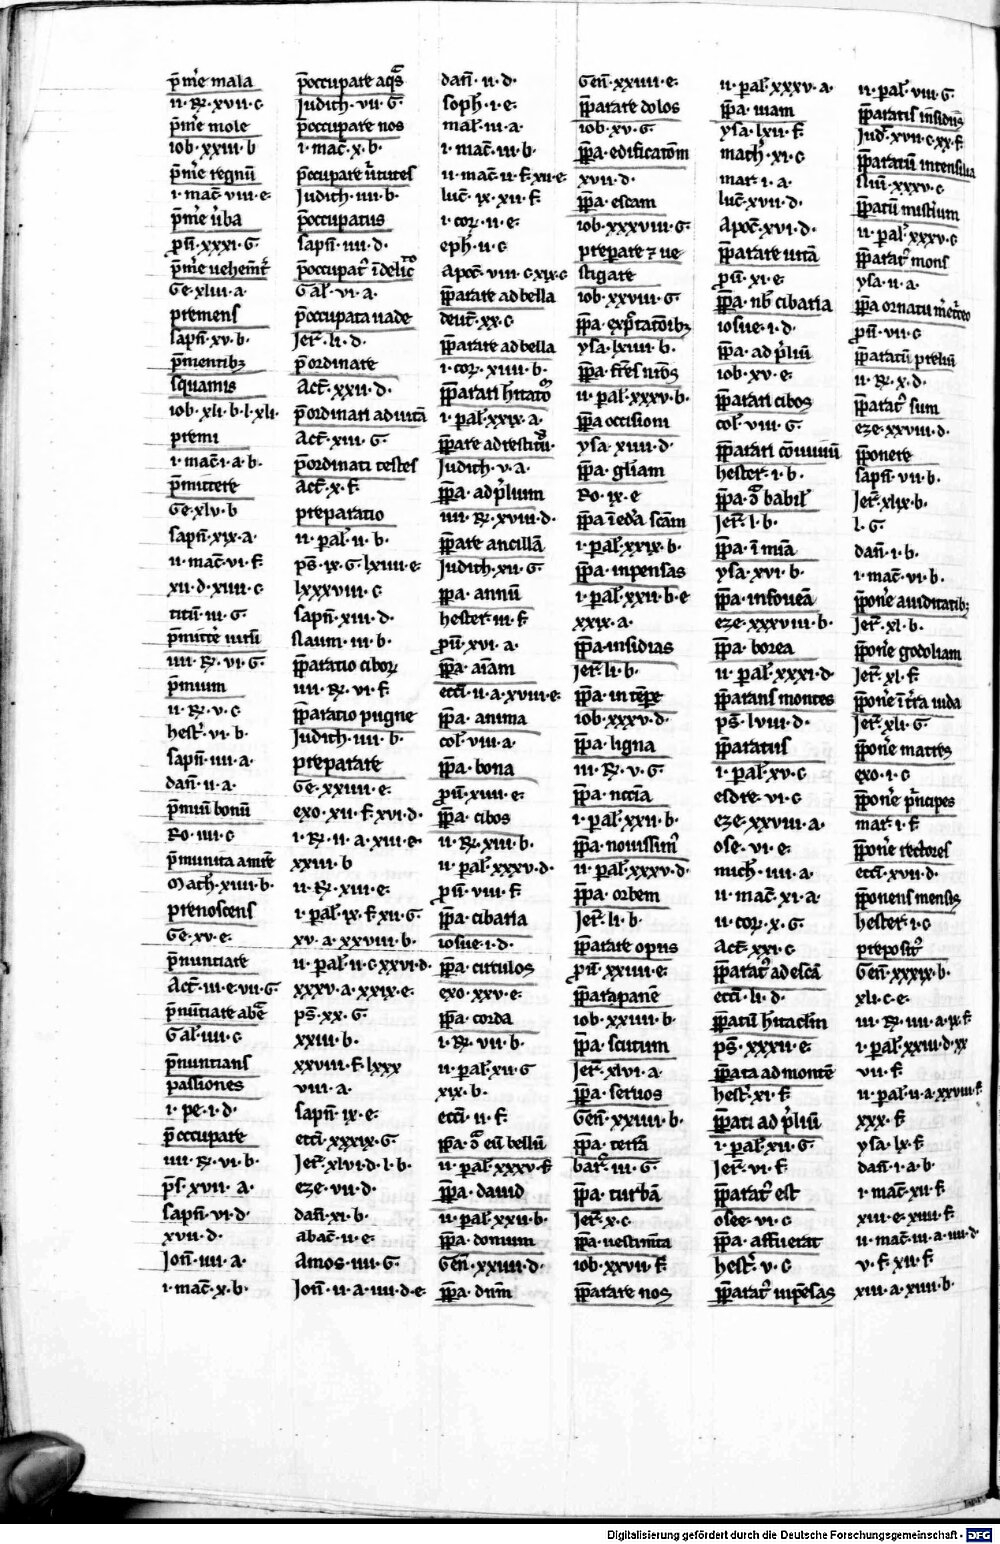 p̄me mala
ii· R̄· xvii· c
p̄me mole
iob· xxiii· b
p̄me regnū
i· mac̄· viii· e·
p̄me v̄ba
pū· xxxi· G·
p̄me uehem̄t
Ge· xliii· a·
premens
sapn̄· xv· b·
p̄mentibꝫ
squamis
iob· xli· b· l· xli·
premi
i· mac̄· i· a· b·
p̄mittere
Ge· xlv· b
sapn̄· xix· a·
ii· mac̄· vi· f·
xii· d· xiiii· c
titū· iii· G·
p̄mittē uirū
iiii· R̄· vi· G·
p̄mium
ii· R̄· v· c
hest̄· vi· b·
sapn̄· iiii· a·
dan̄· ii· a·
p̄miū bonū
Ro· iiii· c
p̄munita a mr̄e
Math· xiiii· b·
prenoscens
Ge· xv· e·
p̄nuntiare
Act̄· iii· e· vii· G·
p̄nūtiare abē
Gal̄· iiii· c
p̄nuntians
passiones
i· pe· i· d·
p̄occupare
iiii· R̄· vi· b·
ps̄· xvii· a·
sapn̄· vi· d·
xvii· d·
Jon̄· iiii· a·
i· mac̄· x· b·
p̄occupare aqs̄
Judith· vii· G·
p̄occupare nos
i· mac̄· x· b·
p̄occupare v̄tutes
Judith· iiii· b·
p̄occupatus
sapn̄· iiii· d·
p̄occupat᷒ ī delic̄to
Gal̄· vi· a·
p̄occupata uade
Jer̄· li· d·
p̄ordinare
Act̄· xxii· d·
p̄ordinari ad uitā
Act̄· xiii· G·
p̄ordinati testes
Act̄· x· f·
preparatio
ii· pal̄· ii· b·
ps̄· ix· G· lxiiii· e
lxxxviii· c
sapn̄· xiii· d·
naum· iii· b·
p̄paratio ciboꝝ
iiii· R̄· vi· f·
p̄paratio pugne
Judith· iiii· b·
preparare
Ge· xxiiii· e·
exo· xii· f· xvi· d·
i· R̄· ii· a· xiii· e·
xxiii· b
ii· R̄· xiii· e·
i· pal̄· ix· f· xii· G·
xv· a· xxviii· b·
ii· pal̄· ii· c xxvi· d·
xxxv· a· xxix· e·
ps̄· xx· G·
xxiii· b·
xxviii· f· lxxx
viii· a·
sapn̄· ix· e·
eccī· xxxix· G·
Jer̄· xlvi· d· l· b·
eze· vii· d·
dan̄· xi· b·
abac̄· ii· e·
Amos· iiii· G·
Jon̄· ii· a· iiii· d· e·
dan̄· ii· d·
soph̄· i· e·
mal̄· iii· a·
i· mac̄· iii· b·
ii· mac̄· ii· f· xii· e·
luc̄· ix· xii· f·
i· coꝝ· ii· e·
eph̄· ii· c
Apoc̄· viii· c xix· c
p̄parare ad bella
deut̄· xx· c
p̄parare ad bella
i· coꝝ· xiiii· b·
i· pal̄· xxix· a·
Judith· v· a·
p̄pa· ad p̄lium
iiii· R̄· xviii· d·
p̄pare ancillā
Judith· xii· G·
p̄pa· annū
hester· iii· f·
pū· xvi· a·
p̄pa· aīam
eccī· ii· a· xviii· e·
p̄pa· anima
col̄· viii· a·
p̄pa· bona
pū· xiiii· e·
p̄pa· cibos
ii· R̄· xiii· b·
ii· pal̄· xxxv· d·
pū· viii· f·
p̄pa· cibaria
iosue· i· d·
p̄pa· citulos
exo· xxv· e·
p̄pa· corda
i· R̄· vii· b·
ii· pal̄· xii· G
xix· b·
eccī· ii· f·
p̄pa· ɔ̄ eū bellū
ii· pal̄· xxxv· f·
p̄pa· dauid
ii· pal̄· xxii· b·
p̄pa· donum
Gen̄· xxiiii· d·
p̄pa· dn̄m
Gen̄· xxiiii· e·
p̄parare dolos
iob· xv· G·
p̄pa· edificatōm
xvii· d·
p̄pa· escam
iob· xxxviii· G·
prepare ⁊ ue
stigare
iob· xxviii· G·
p̄pa· exp̄tatōibꝫ
ysa· lxiiii· b·
p̄pa· fr̄es nr̄os
ii· pal̄· xxxv· b·
p̄pa occisioni
ysa· xiiii· d·
p̄pa· gl̄iam
Ro· ix· e
i· pal̄· xxix· b·
p̄pa· inpensas
i· pal̄· xxii· b· e
xxix· a·
p̄pa· insidias
Jer̄· li· b·
p̄pa· in tēpe
iob· xxxv· d·
p̄pa· ligna
iii· R̄· v· G·
p̄pa· nccīa
i· pal̄· xxii· b·
p̄pa· nouissim᷒
ii· pal̄· xxxv· d·
p̄pa· orbem
Jer̄· li· b·
p̄parare opus
pū· xxiiii· e·
p̄para panē
iob· xxiiii· b·
p̄pa· scutum
Jer̄· xlvi· a·
p̄pa· seruos
Gen̄· xxiiii· b·
p̄pa· terrā
bar̄· iii· G·
p̄pa· turbā
Jer̄· x· c·
p̄pa· uestim̄ta
iob· xxvii· f·
p̄parare nos
ii· pal̄· xxxv· a·
p̄pa· uiam
ysa· lxii· f·
math̄· xi· c
mar· i· a·
luc̄· xvii· d·
Apoc̄· xvi· d·
p̄parare uitā
pū· xi· e·
p̄pa· nb̄ cibaria
iosue· i· d·
p̄pa· ad p̄liū
iob· xv· e·
p̄parari cibos
col̄· viii· G·
p̄parari cōuiuiū
hester· i· b·
p̄pa· ɔ̄ babil̄
Jer̄· l· b·
p̄pa· ī mīa
ysa· xvi· b·
p̄pa· in foueā
eze· xxxviii· b·
p̄pa· borea
ii· pal̄· xxxi· d·
p̄parans montes
ps̄· lviii· d·
p̄paratus
i· pal̄· xv· c
esdre· vi· c
eze· xxviii· a·
ose· vi· e·
mich· iiii· a·
ii· mac̄· xi· a·
ii· coꝝ· x· G·
Act̄· xxi· c
p̄parat᷒ ad escā
eccī· li· d·
ps̄· xxxii· e·
p̄parata ad montē
hest̄· xi· f·
p̄pati ad p̄liū
i· pal̄· xii· G·
Jer̄· vi· f·
p̄parat᷒ est
osee· vi· c
p̄pa· affuerat
hest̄· v· c
p̄parat᷒ īpēsas
ii· pal̄· viii· G·
p̄paratis insidiis
Jud̄· xvii· c· xx· f·
p̄paratū intensilia
nūi· xxxv· c
ii· pal̄· xxxv· c
p̄parat᷒ mons
ysa· ii· a·
pū· vii· c
p̄paratū preliū
ii· R̄· x· d·
p̄parat᷒ sum
eze· xxviii· d·
p̄ponere
sapn̄· vii· b·
Jer̄· xlix· b·
l· G·
dan̄· i· b·
i· mac̄· vi· b·
p̄pon̄e auiditatibꝫ
Jer̄· xl· b·
p̄pon̄e godoliam
Jer̄· xl· f·
p̄pon̄e ī t̄ra iuda
Jer̄· xli· G·
p̄pon̄e matres
exo· i· c
p̄pon̄e p̄ncipes
mar· i· f·
p̄pon̄e rectores
eccī· xvii· d·
p̄ponens mensis
hester· i· c
preposit᷒
Gen̄· xxxix· b·
xli· c· e·
iii· R̄· iiii· a· ix· f·
i· pal̄· xxiii· d· xx
vii· f·
ii· pal̄· ii· a· xxviii· f·
xxx· f·
ysa· lx· f·
dan̄· i· a· b·
i· mac̄· xii· f·
xiii· e· xiiii· f·
ii· mac̄· iii· a· iiii· d·
v· f· xii· f·
xiii· a· xiiii· b·
Digitalisierung gefördert durch die Deutsche Forschungsgemeinschaft - DFG